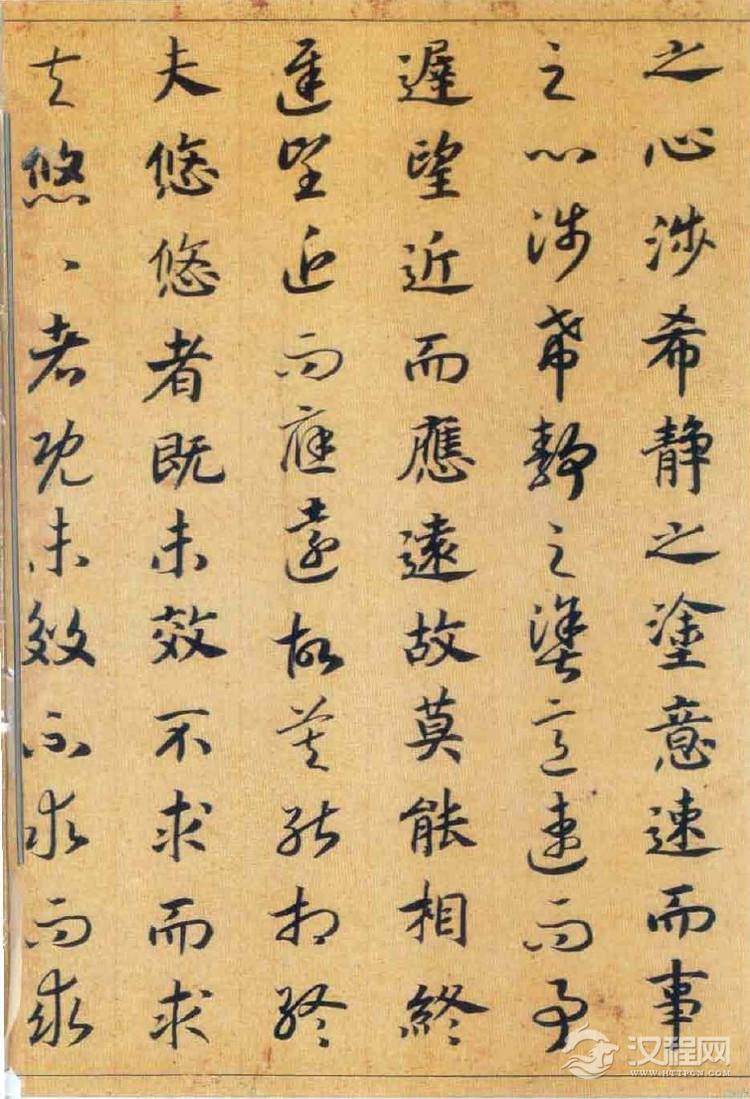 之心涉希静之塗意速而事
之心涉希静之塗意速而事
遲望近而應遠故莫能相終
遲望近而應遠故莫能相終
夫悠悠者既未效不求而求
夫悠、者既未效不求而求
汉程网
WWW.HTTPCN.COM